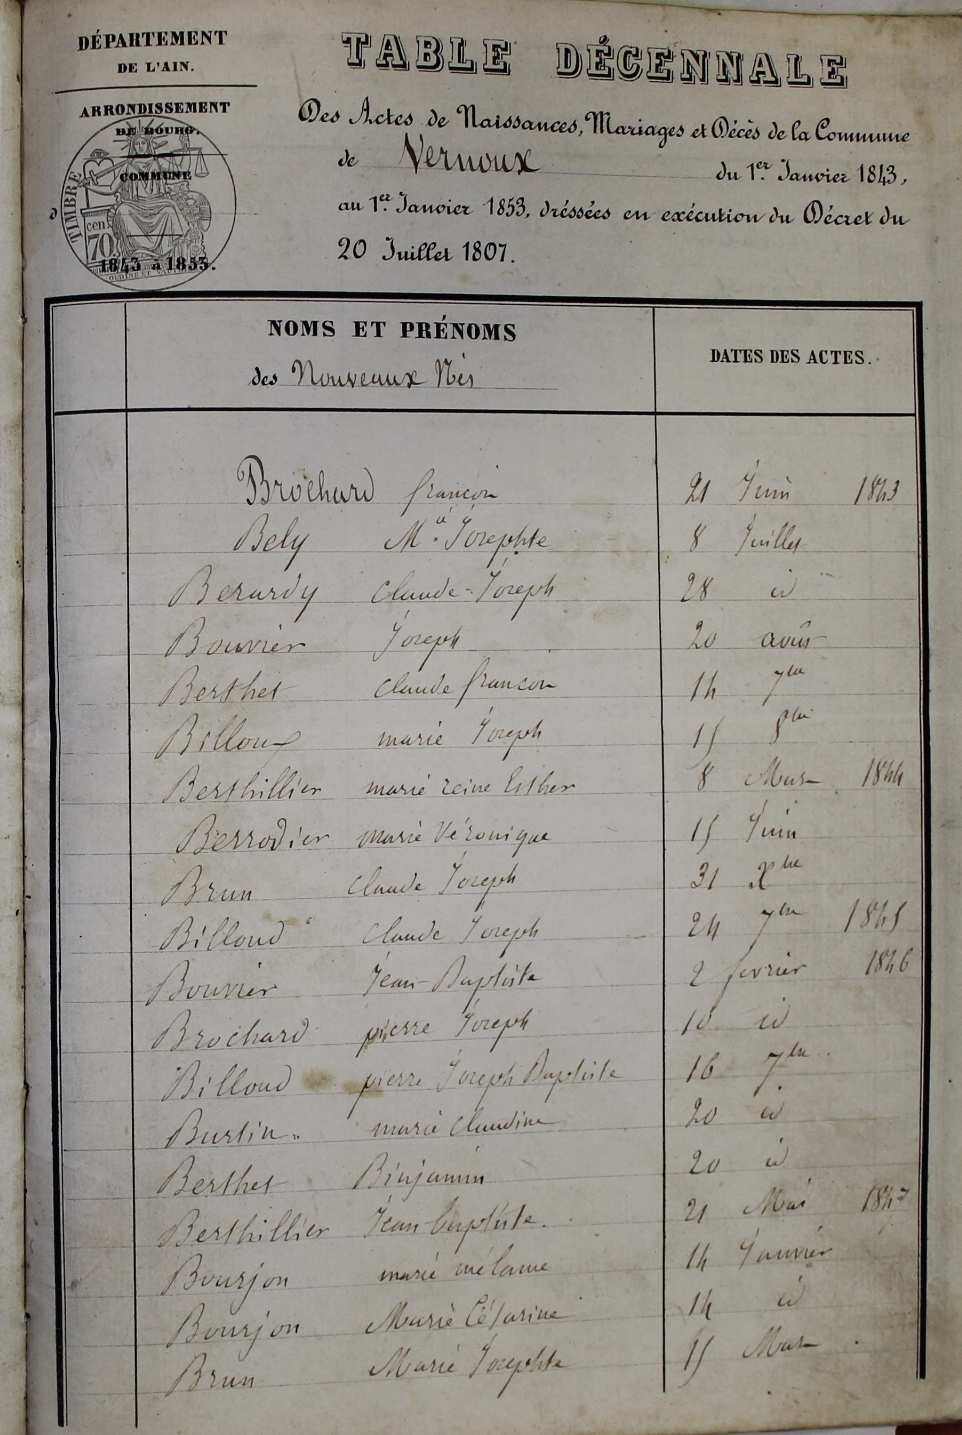 DÉPARTEMENT
DE L'AIN.
ARRONDISSEMENT
DE BOURG.
COMMUNE
d
TIMBRE
cen.
70
1843 à 1853.
TABLE DÉCENNALE
Des Actes de Naissances, Mariages et Décès de la Commune
de Vernoux du 1er. Janvier 1843,
au 1er. Janvier 1853, dréssées en exécution du Décret du
20 Juillet 1807.
NOMS ET PRÉNOMS
des Nouveaux Nés
DATES DES ACTES.
Brochard françois 21 Juin 1843
Bely Mie Josephte 8 Juillet
Berardy Claude-Joseph 28 id
Bouvier Joseph 20 août
Berthet Claude françois 14 7bre
Billoux marie Joseph 15 8bre
Berthillier marie reine Esther 8 Mars 1844
Berrodier marie Véronique 15 Juin
Brun Claude Joseph 31 Xbre
Billoud Claude Joseph 24 7bre 1845
Bouvier Jean-Baptiste 2 fevrier 1846
Brochard pierre Joseph 10 id
Billoud pierre Joseph Baptiste 16 7bre
Burtin marie Claudine 20 id
Berthet Binjamin 20 id
Berthillier Jean baptiste. 21 Mai 1847
Bourjon marie mélanie 14 Janvier
Bourjon Marie Césarine 14 id
Brun Marie Josephte 15 Mars